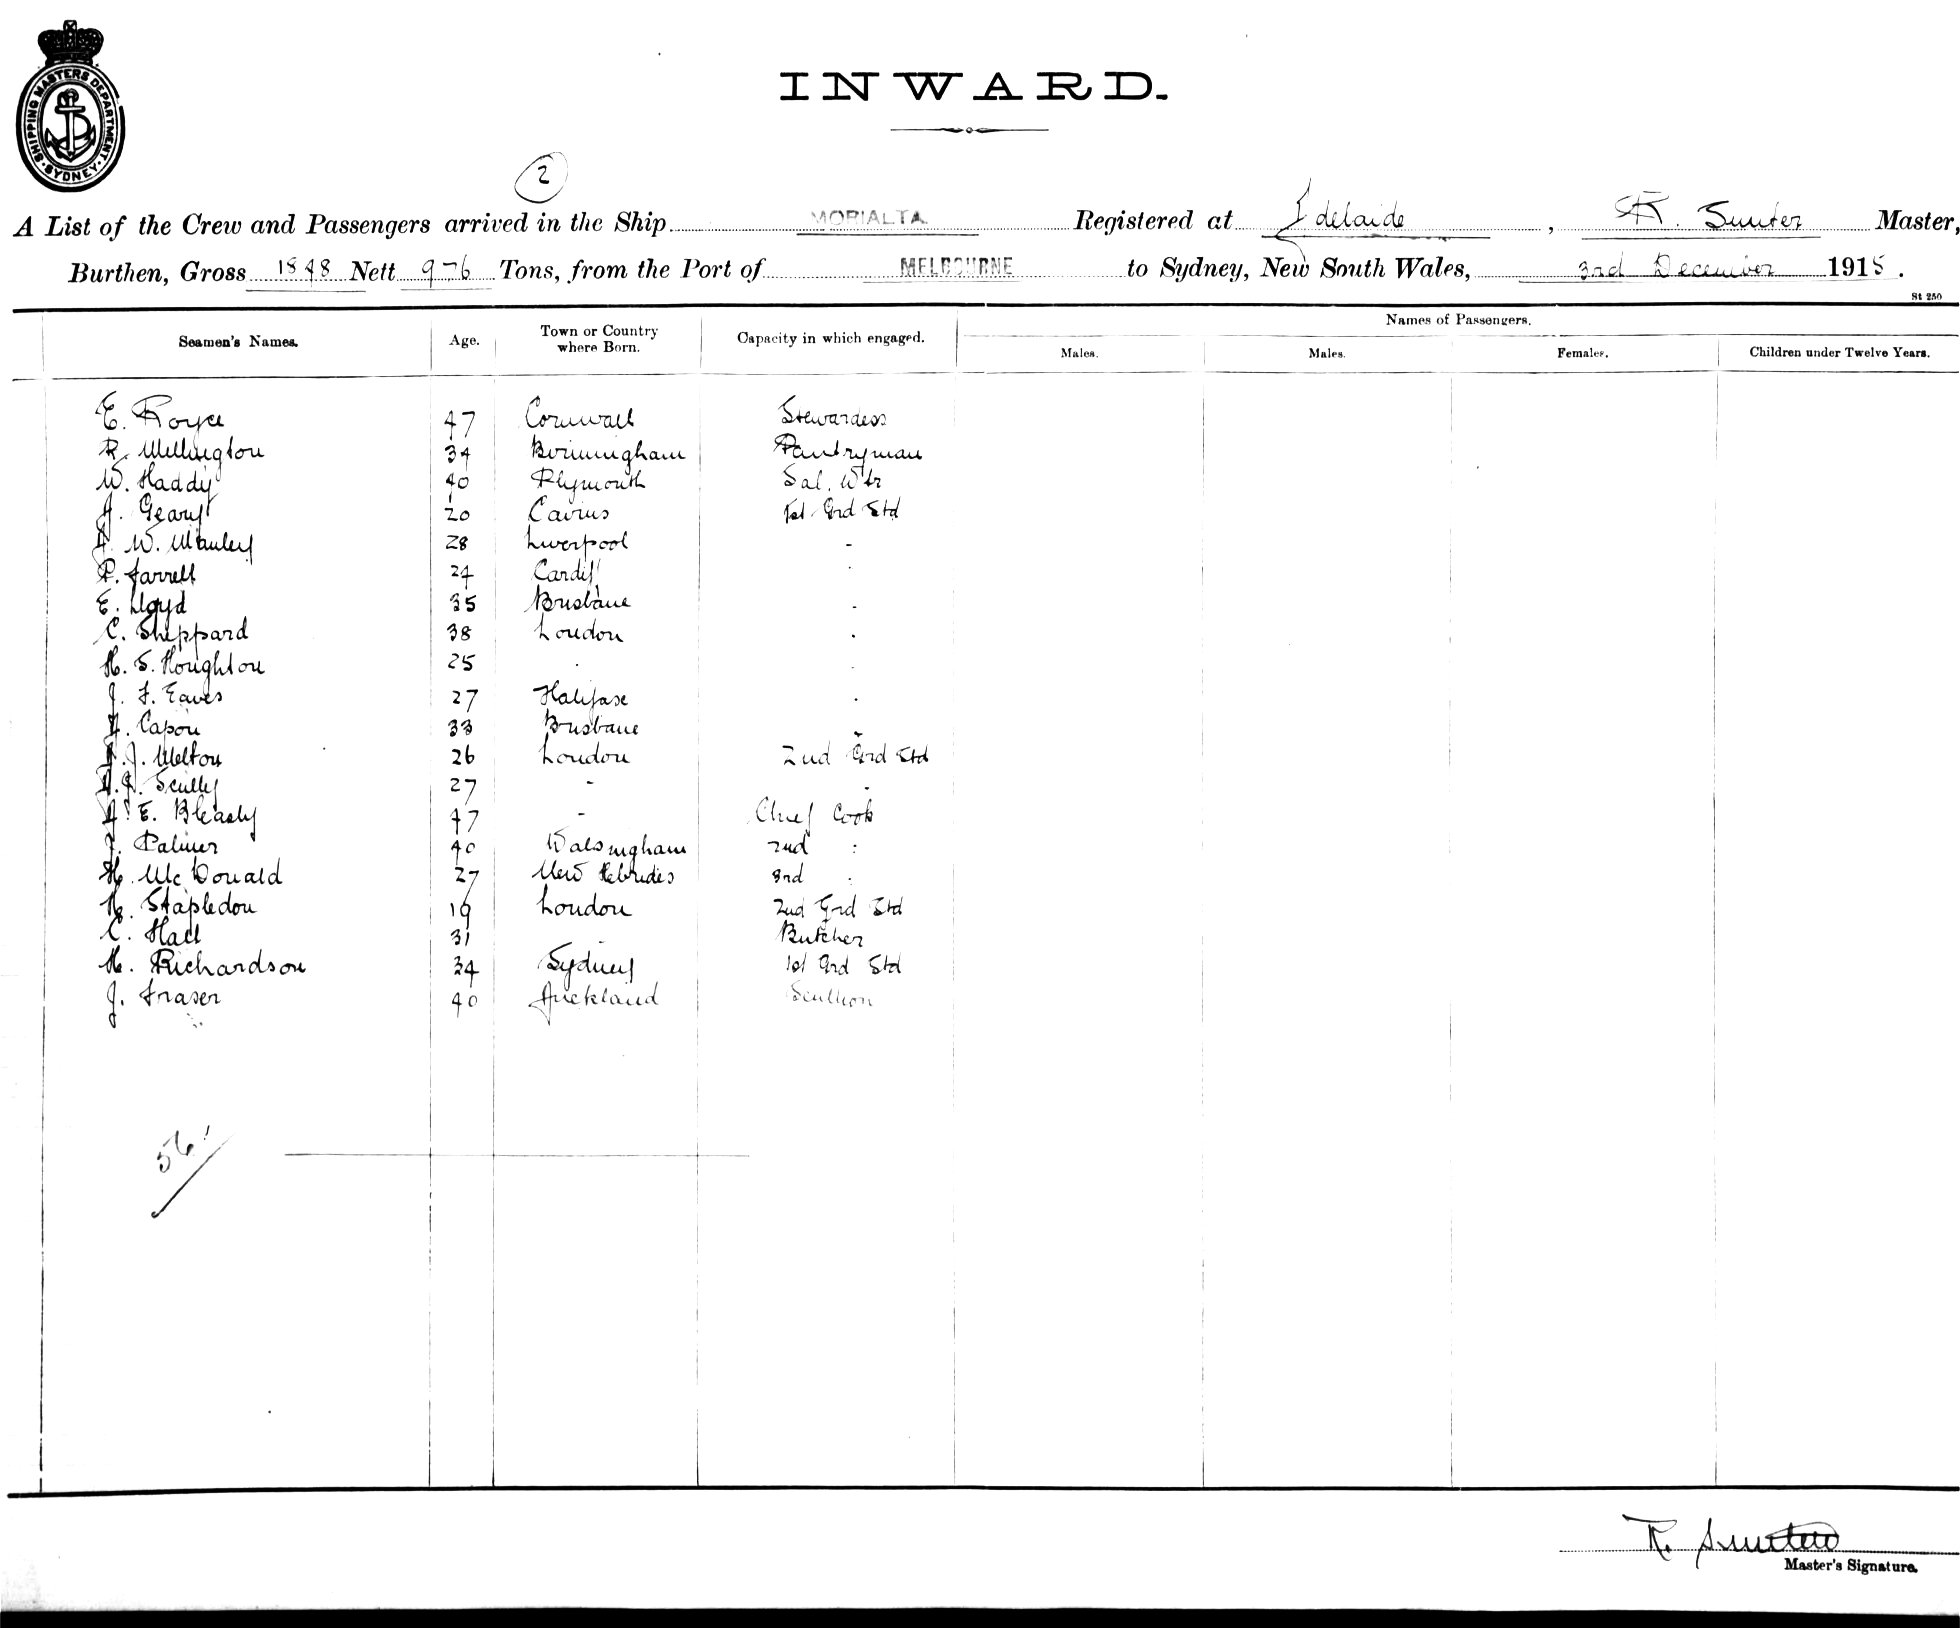 SHIPPING MASTERS DEPARTMENT · SYDNEY ·
INWARD.
2
A List of the Crew and Passengers arrived in the Ship MORIALTA Registered at Adelaide, R. Sunter Master,
Burthen, Gross 1848 Nett 976 Tons, from the Port of MELBOURNE to Sydney, New South Wales, 3rd December 1915.
St 250
Seamen's Names. Age. Town or Country where Born. Capacity in which engaged. Names of Passengers.
Males. Males. Females. Children under Twelve Years.
E. Royce 47 Cornwall Stewardess
R. Wellington 34 Birmingham Pantryman
W. Haddy 40 Plymouth Sal. Wtr
J. Geary 20 Cairns 1st Grd Std
W. Manley 28 Liverpool -
P. Farrell 24 Cardiff
E. Lloyd 35 Brisbane
C. Sheppard 38 London
H. S. Houghton 25
J. F. Eaves 27 Halifax
A. Capon 33 Brisbane
J. Melton 26 London 2nd Grd Std
Scully 27 -
A. E. Bleasly 47 - Chief Cook
J. Palmer 40 Walsingham 2nd :
H. McDonald 27 New Hebrides 3rd :
H. Stapledon 19 London 2nd Grd Std
C. Hall 31 Butcher
H. Richardson 34 Sydney 1st Grd Std
J. Fraser 40 Auckland Scullion
56
R. Sunter
Master's Signature.